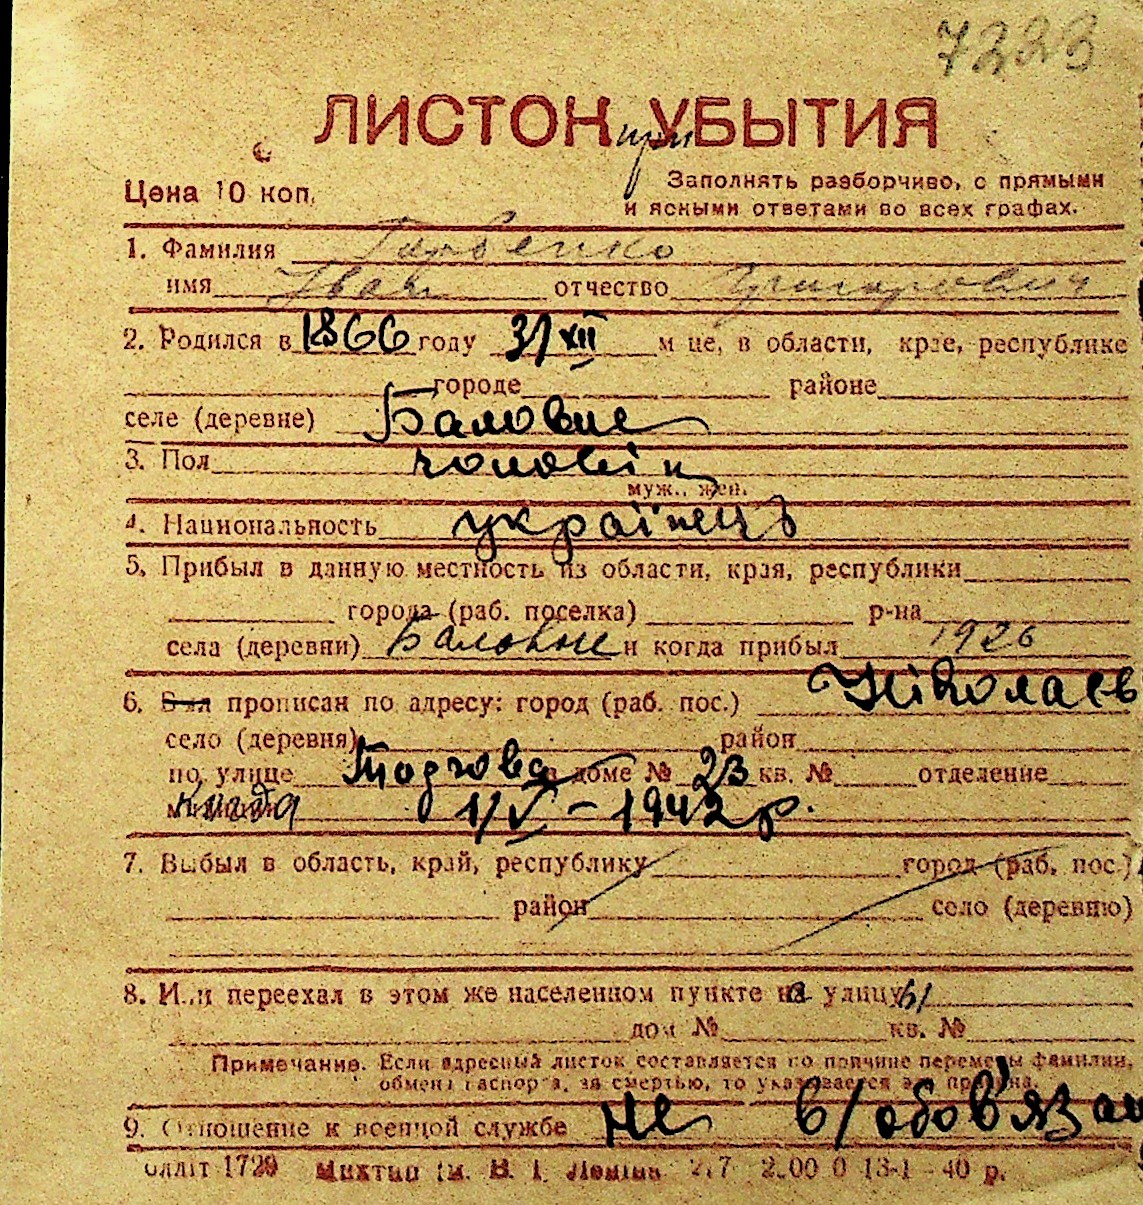 7223
ЛИСТОК при УБЫТИЯ
Цена 10 коп.
Заполнять разборчиво, с прямыми
и ясными ответами во всех графах.
1. Фамилия
имя Іван отчество Григорович
2. Родился в 1866 году 31/XII м-це, в области, крае, республике
городе районе
селе (деревне) Баловне
3. Пол чоловік
муж., жен.
4. Национальность українець
5. Прибыл в данную местность из области, края, республики
города (раб. поселка) р-на
села (деревни) Баловне и когда прибыл 1926
6. Был прописан по адресу: город (раб. пос.) Ніколаєв
село (деревня) район
по улице в доме № 23 кв. № отделение
милиции 1/V – 1942 р.
7. Выбыл в область, край, республику город (раб. пос.)
район село (деревню)
8. Или переехал в этом же населенном пункте на улицу
дом № кв. №
Примечание. Если адресный листок составляется по причине перемены фамилии,
обмена паспорта, за смертью, то указывается эта причина.
9. Отношение к военной службе не в/обов'язан
1729 им. В. І. Леніна 2.00 0 13-1 - 40 р.